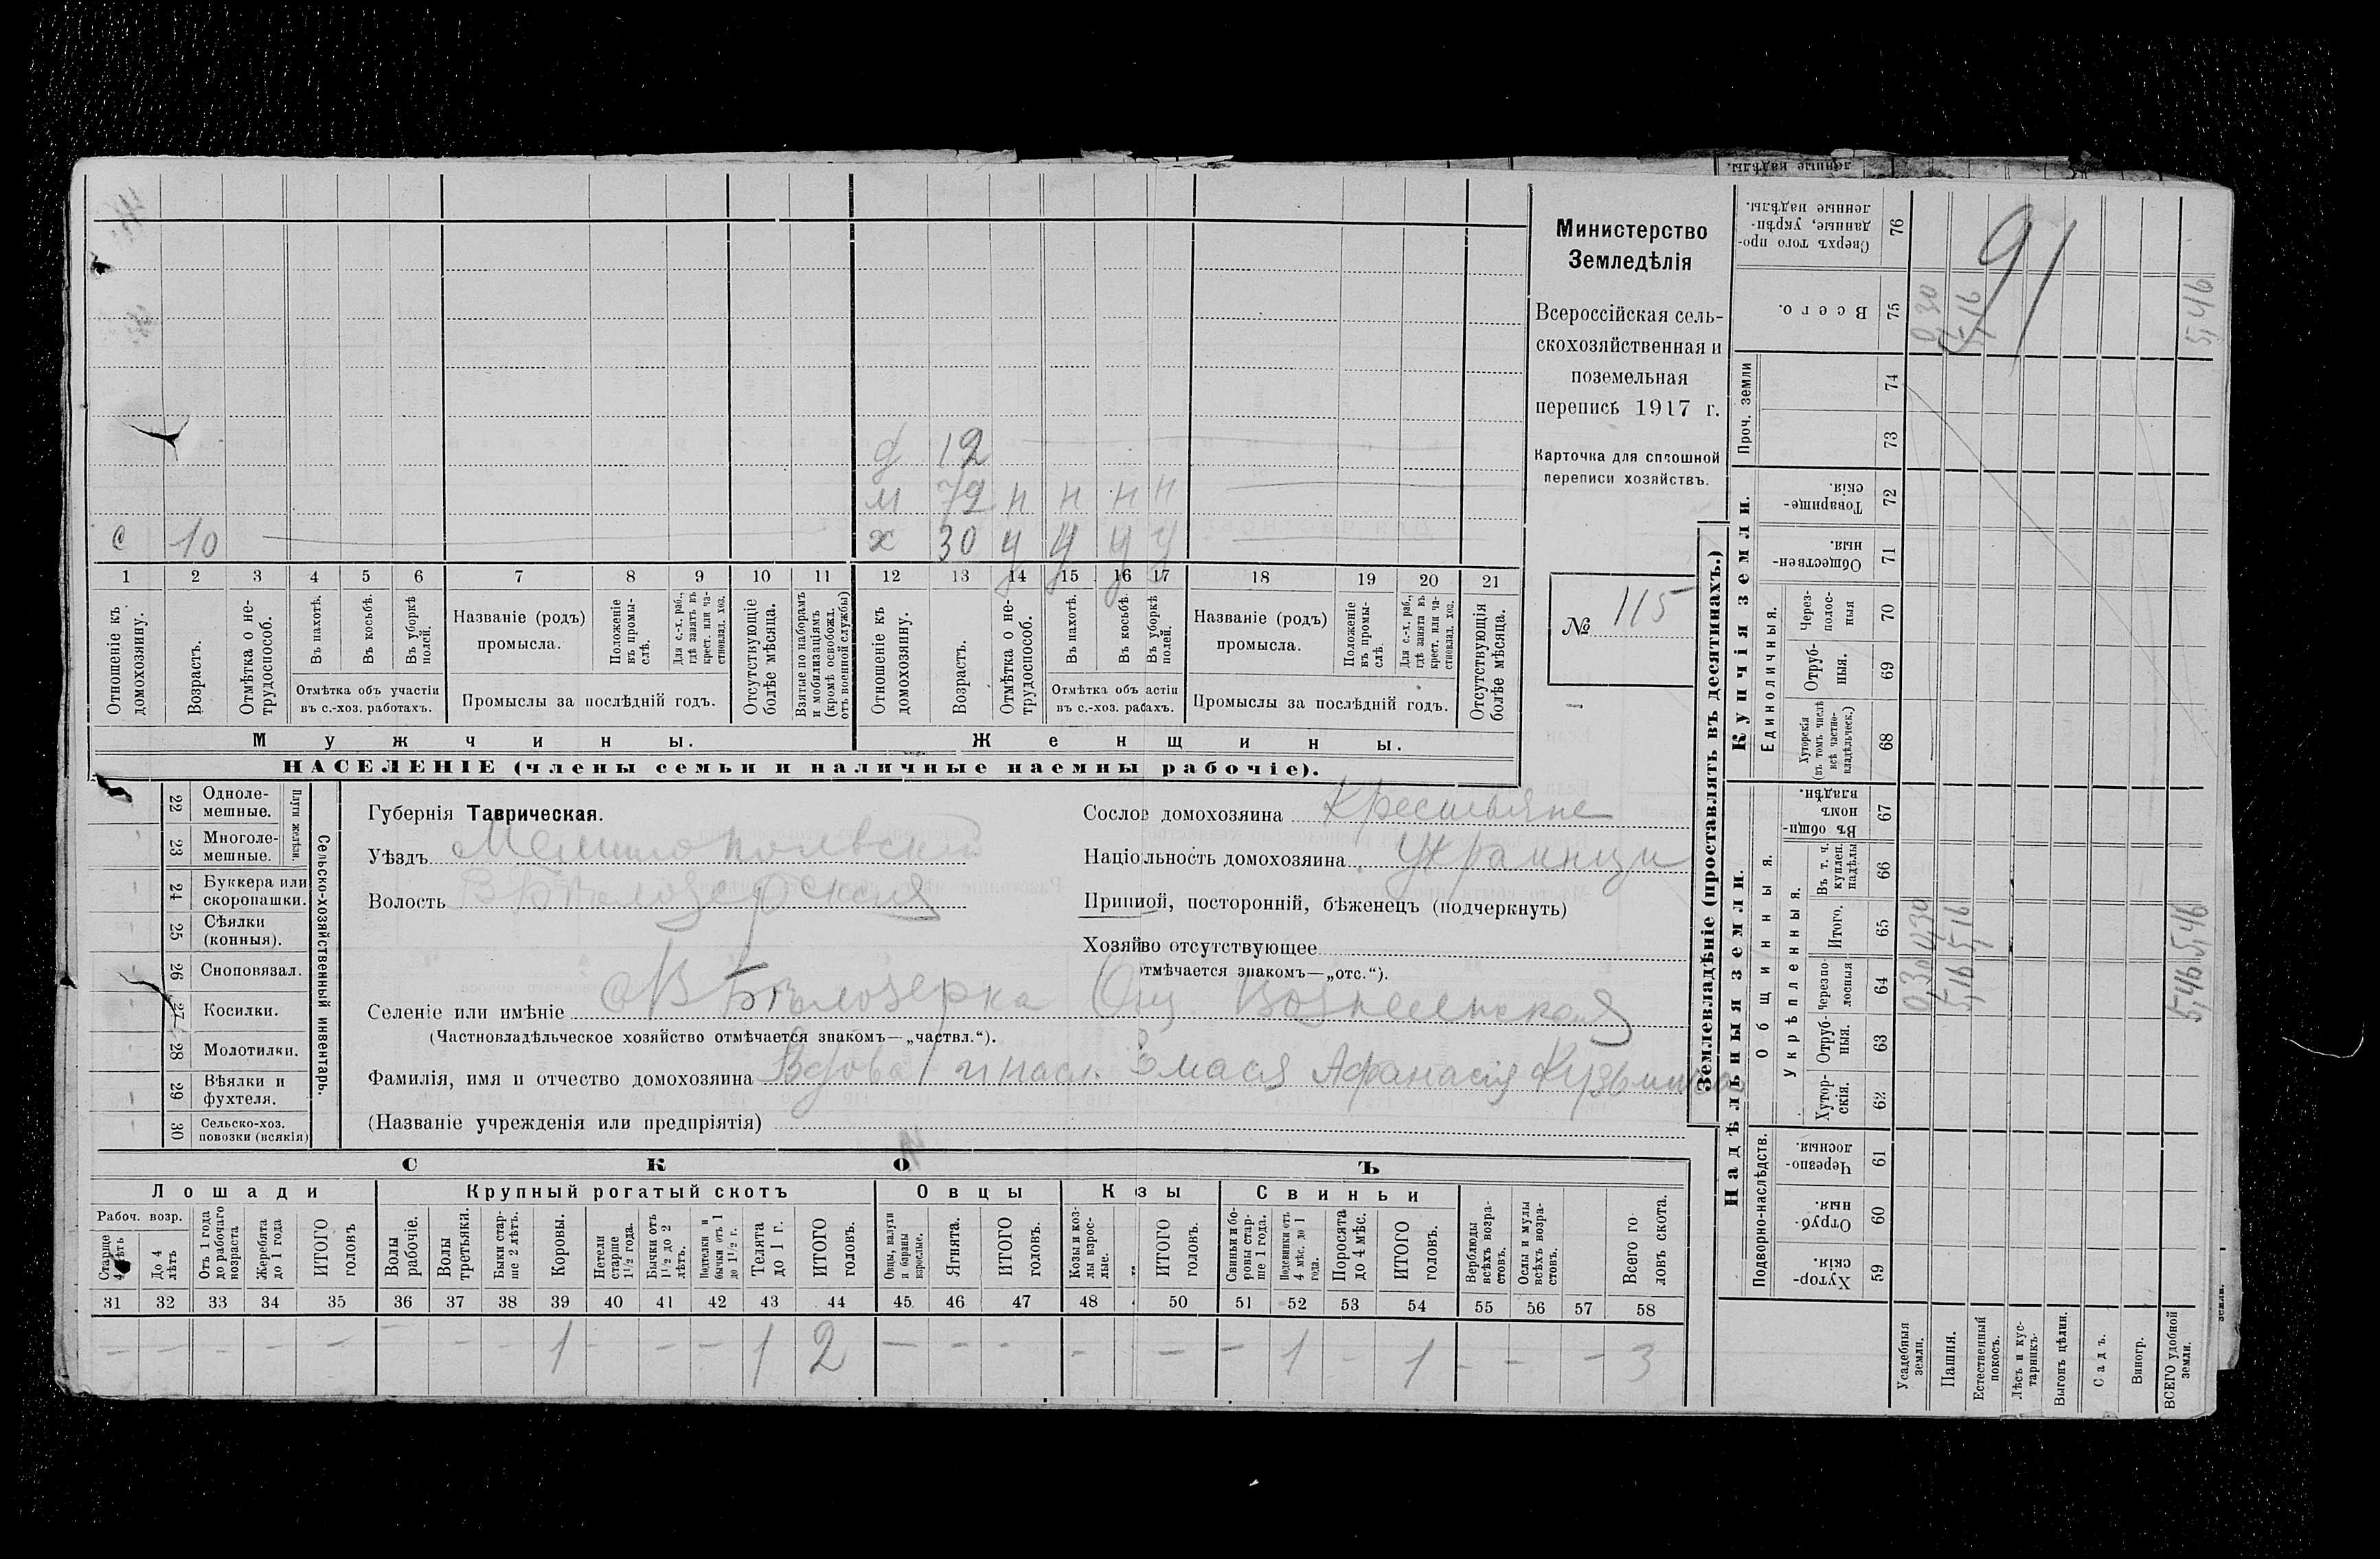 с 10
д 12
м 72 н н н н
х 30 у у у у
1 2 3 4 5 6 7 8 9 10 11 12 13 14 15 16 17 18 19 20 21
Отношеніе къ домохозяину.
Возрастъ.
Отмѣтка о нетрудоспособ.
Въ пахотѣ.
Въ косьбѣ.
Въ уборкѣ полей.
Отмѣтка объ участіи
въ с.-хоз. работахъ.
Названіе (родъ)
промысла.
Положеніе въ промыслѣ.
Для с.-х. раб., гдѣ занятъ въ крест. или частновлад. хоз.
Промыслы за послѣдній годъ.
Отсутствующіе болѣе мѣсяца.
Взятые по наборамъ и мобилизаціямъ (кромѣ освобожд. отъ военной службы)
Отношеніе къ домохозяину.
Возрастъ.
Отмѣтка о нетрудоспособ.
Въ пахотѣ.
Въ косьбѣ.
Въ уборкѣ полей.
Отмѣтка объ астіи
въ с.-хоз. рабахъ.
Названіе (родъ)
промысла.
Положеніе въ промыслѣ.
Для с.-х. раб., гдѣ занята въ крест. или частновлад. хоз.
Промыслы за послѣдній годъ.
Отсутствующія болѣе мѣсяца.
Мужчины.
Женщины.
НАСЕЛЕНІЕ (члены семьи и наличные наемны рабочіе).
Министерство
Земледѣлія
Всероссійская сель-
скохозяйственная и
поземельная
перепись 1917 г.
Карточка для сплошной
переписи хозяйствъ.
№ 115
22 Одноле-
мешные.
23 Многоле-
мешные.
Плуги желѣзн.
24 Буккера или
скоропашки.
25 Сѣялки
(конныя).
26 Сноповязал.
27 Косилки.
28 Молотилки.
29 Вѣялки и
фухтеля.
30 Сельско-хоз.
повозки (всякія)
Сельско-хозяйственный инвентарь.
Губернія Таврическая.
Уѣздъ Мелитопольский
Волость В Бѣлозерская
Сослов домохозяина Крестьяне
Націольность домохозяина Украинцы
Припиой, посторонній, бѣженецъ (подчеркнуть)
Хозяйво отсутствующее
отмѣчается знакомъ—„отс.“).
Селеніе или имѣніе В Бѣлозерка Общ. Вознесенская
(Частновладѣльческое хозяйство отмѣчается знакомъ—„частвл.“).
Фамилія, имя и отчество домохозяина Вдова и насл. Афанасія
(Названіе учрежденія или предпріятія)
СКОЪ
Лошади
Крупный рогатый скотъ
Овцы
Кзы
Свиньи
Рабоч. возр.
Старше 4 лѣтъ
До 4 лѣтъ
Отъ 1 года до рабочаго возраста
Жеребята до 1 года
ИТОГО головъ
Волы рабочіе.
Волы третьяки.
Быки старше 2 лѣтъ.
Коровы.
Нетели старше 1½ года.
Бычки отъ 1½ до 2 лѣтъ.
Подтелки и бычки отъ 1 до 1½ г.
Телята до 1 г.
ИТОГО головъ.
Овцы, валухи и бараны взрослые.
Ягнята.
ИТОГО головъ.
Козы и козлы взрослые.
ИТОГО головъ.
Свиньи и боровы старше 1 года.
Подсвинки отъ 4 мѣс. до 1 года.
Поросята до 4 мѣс.
ИТОГО головъ.
Верблюды всѣхъ возрастовъ.
Ослы и мулы всѣхъ возрастовъ.
Всего головъ скота.
31 32 33 34 35 36 37 38 39 40 41 42 43 44 45 46 47 48 50 51 52 53 54 55 56 57 58
– – – – – – – – 1 – – – 1 2 – – – – – – 1 – 1 – – – 3
Землевладѣніе (проставлять въ десятинахъ.)
Надѣльныя земли.
Купчія земли.
Проч. земли
Подворно-наслѣдств.
Общинныя.
Укрѣпленныя.
Единоличныя.
Сверхъ того проданные, укрѣпленные надѣлы. 76
Всего. 75
74
73
Товарищескія. 72
Общественныя. 71
Черезполосныя 70
Отрубныя. 69
Хуторскія (въ томъ числѣ всѣ частновладѣльческ.) 68
Въ общинномъ владѣн. 67
Въ т. ч. куплен. надѣлы 66
Итого. 65
Черезполосныя 64
Отрубныя. 63
Хуторскія. 62
Черезполосныя. 61
Отрубныя. 60
Хуторскія. 59
Усадебныя земли. 0,30 0,30 0,30
Пашня. 5,16 5,16 5,16
Естественный покосъ.
Лѣсъ и кустарникъ.
Выгонъ цѣлин.
Садъ.
Виногр.
ВСЕГО удобной земли. 5,46 5,46 5,46
91